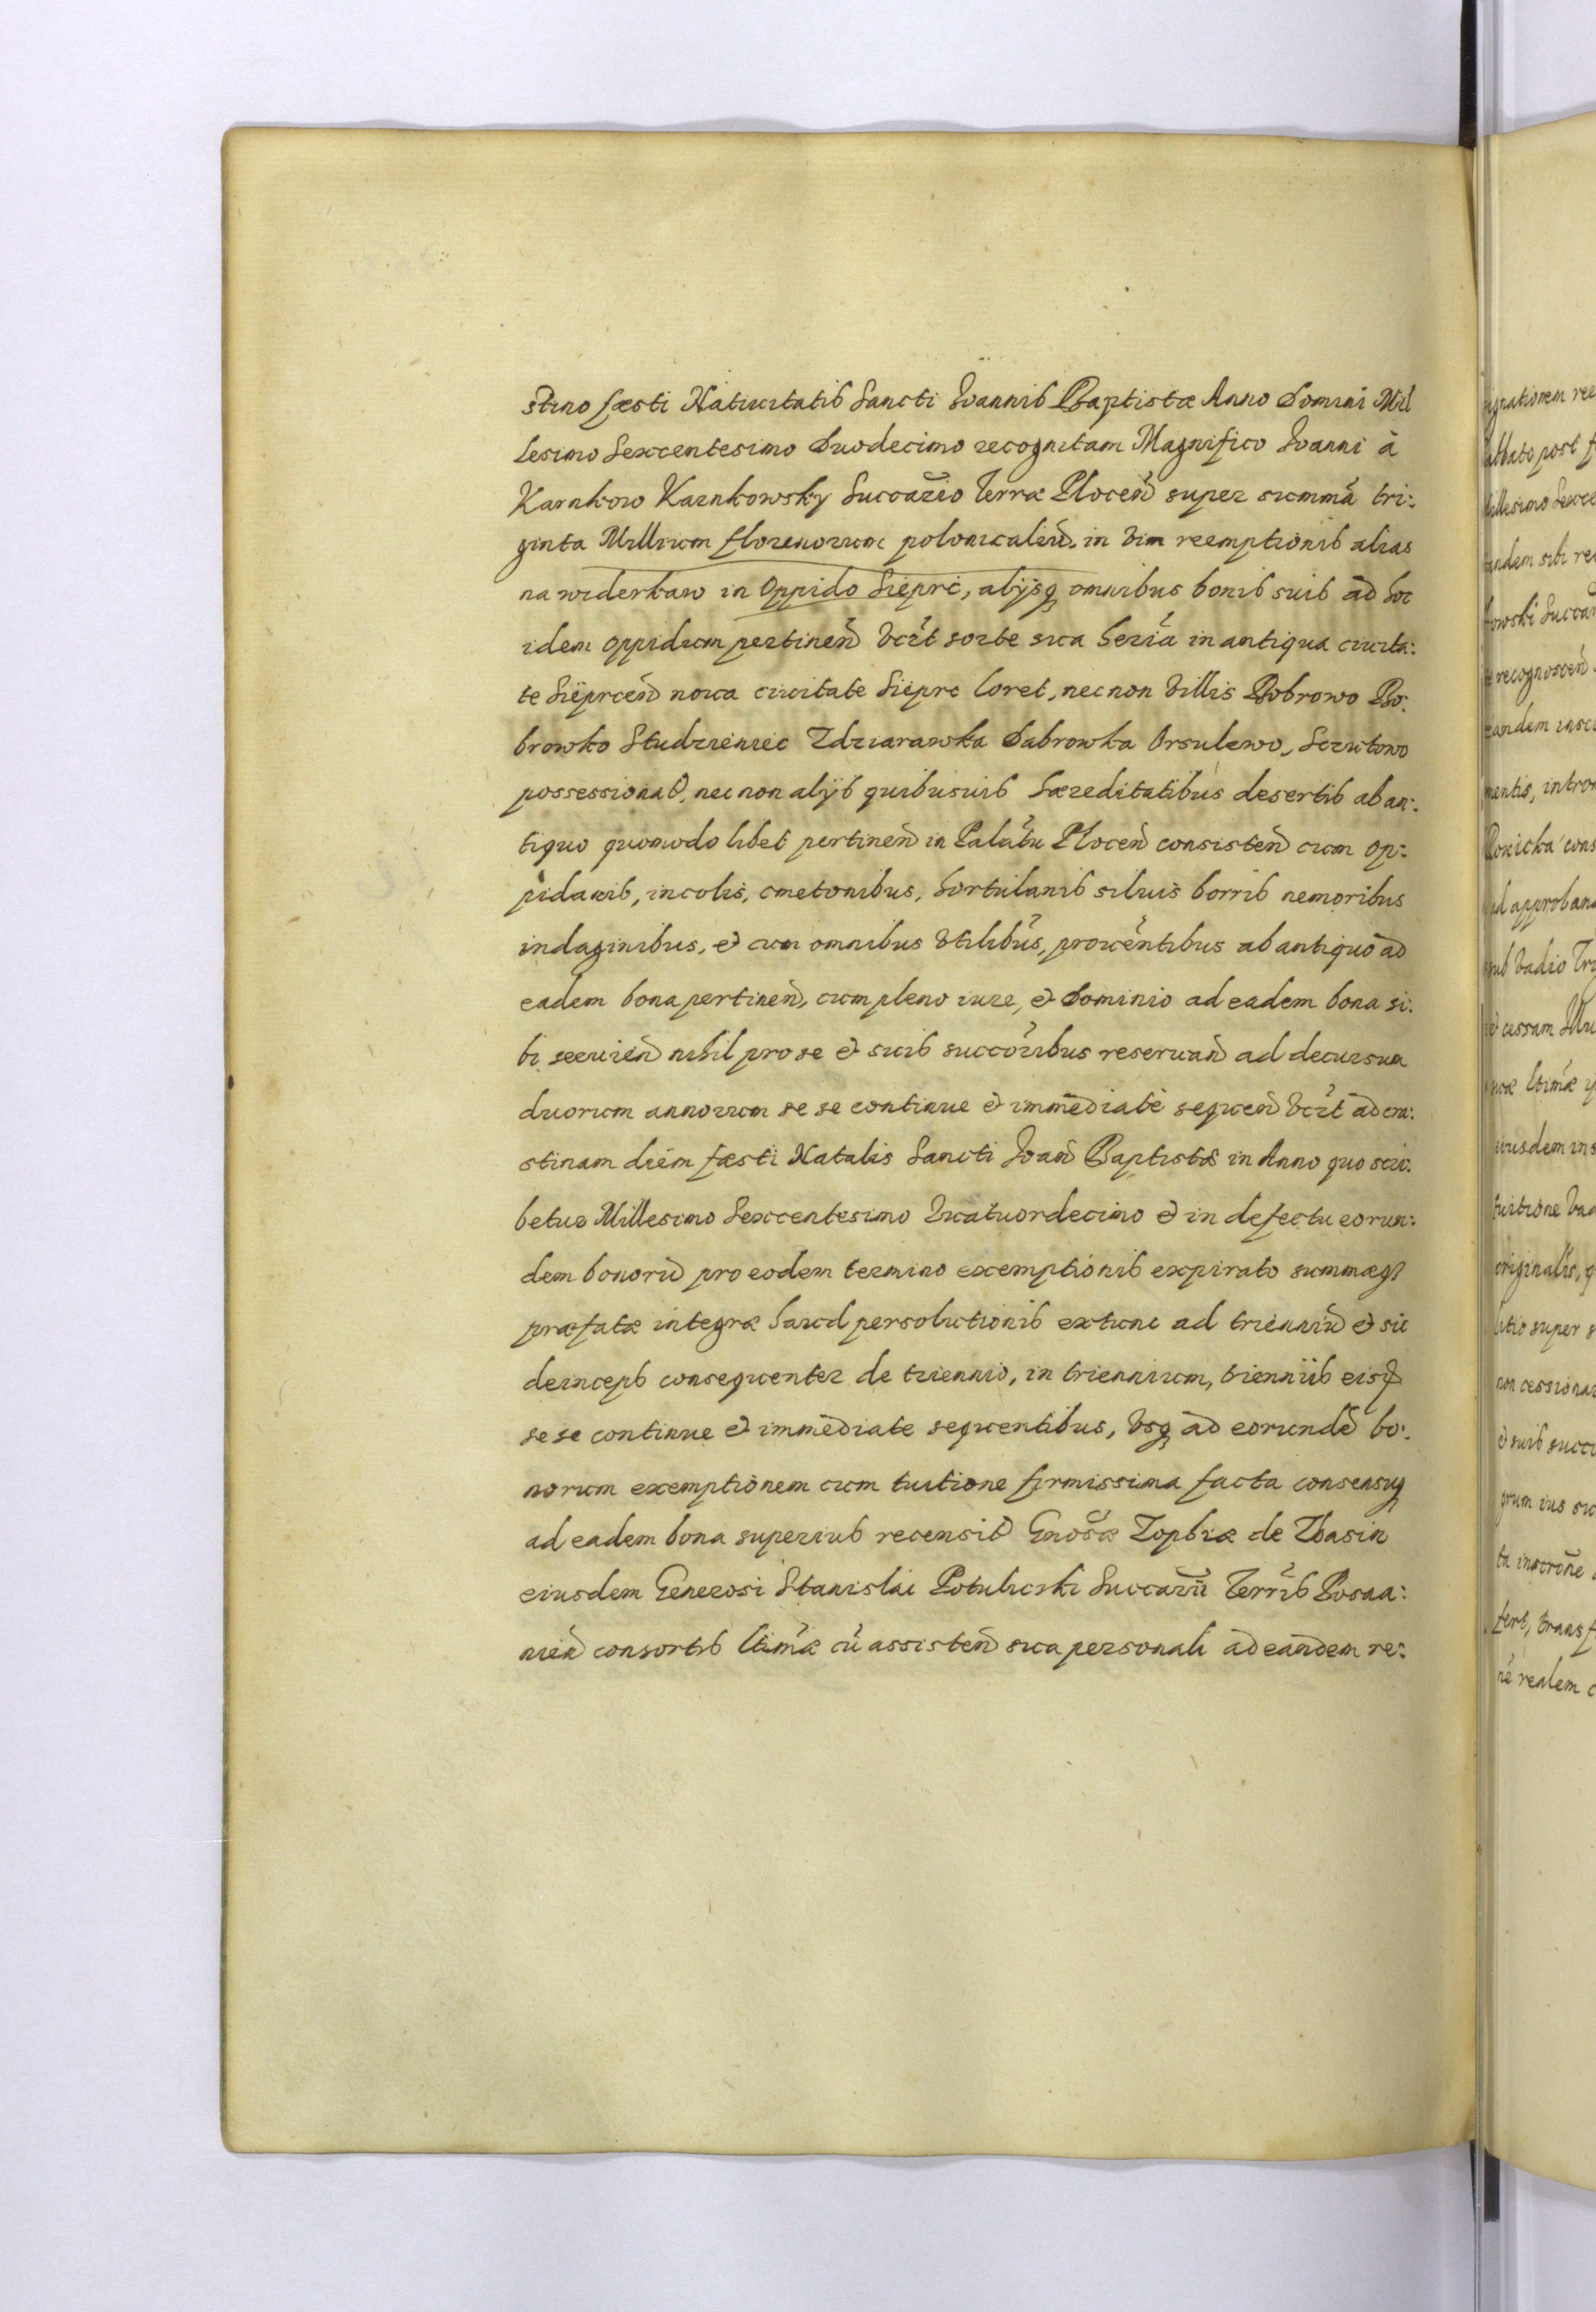 stino fæsti Natiuitatis Sancti Ioannis Baptistæ Anno Domini Mil
lesimo Sexcentesimo Duodecimo recognitam Magnifico Ioanni à
Karnkow Karnkowsky Succam̃rio Terræ Plocen̄ super summā tri:
ginta Millium florenorum polonicaliū, in vim reemptionis alias
na widerkaw in Oppido Sieprc, alÿsq omnibus bonis suis ad hoc
idem oppidum pertinen̄ vc̄rt sorte sua heria in antiqua ciuita:
te Sieprcen̄ noua ciuitate Sieprc Loret, necnon villis Bobrowo Bo:
browko Studzieniec Zdziarawka Dabrowka Orsulewo, Sczutowo
possessionat, necnon alÿs quibusuis hæreditatibus desertis ab an:
tiquo quomodo libet pertinen̄ in Palat̄tu Plocen̄ consisten̄ cum op:
pidanis, incolis, cmetonibus, hortulanis siluis borris nemoribus
indaginibus, et cum omnibus vtilibus, prouentibus ab antiquo ad
eadem bona pertinen̄, cum pleno iure, et Dominio ad eadem bona si:
bi seruien̄ nihil pro se et suis succoribus reseruan̄ ad decursum
duorum annorum se se continue et immediatè sequen̄ vc̄rt ad cra:
stinam diem fæsti Natalis Sancti Ioan̄ Baptistæ in Anno quo scri:
betur Millesimo Sexcentesimo Quatuordecimo et in defectu eorun:
dem bonorū pro eodem termino exemptionis expirato summæq
præfatæ integræ haud persolutionis extunc ad trienniū et sic
deinceps consequenter de triennio, in triennium, trienniis eisq
se se continue et immediate sequentibus, vsq ad eorundē bo:
norum exemptionem cum tuitione firmissima facta consensuq
ad eadem bona superius recensit Gnosæ Zophiæ de Zbasin
eiusdem Generosi Stanislai Potulicski Succam̃rii Terris Posna:
nien̄ consortis Ltimæ cū assisten̄ sua personali ad eandem re: